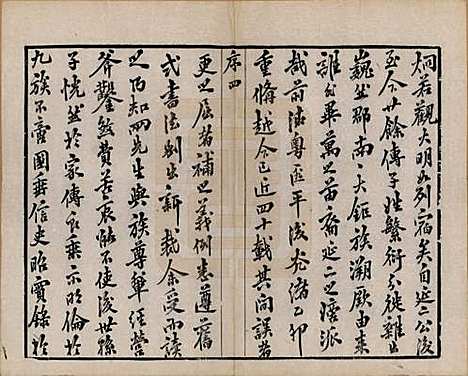 炯若觀大明而列宿矣自延二公後
至今廿餘傳子姓繁衍分徙雖出
巍然郡南一大鉅族溯厥由來
誰非畢萬之苗裔延二之嫡派
哉前清粵匪平後光緒乙卯
重脩越今已近四十載其間誤者
序四
更之屈者補之義例悉遵舊
式書法別出新裁余受而讀
之乃知四先生與族尊輩經營
斧鑿煞費苦衷能不使後世孫
子恍然於家傳永乘示明倫於
九族不啻國乘信史昭實錄於